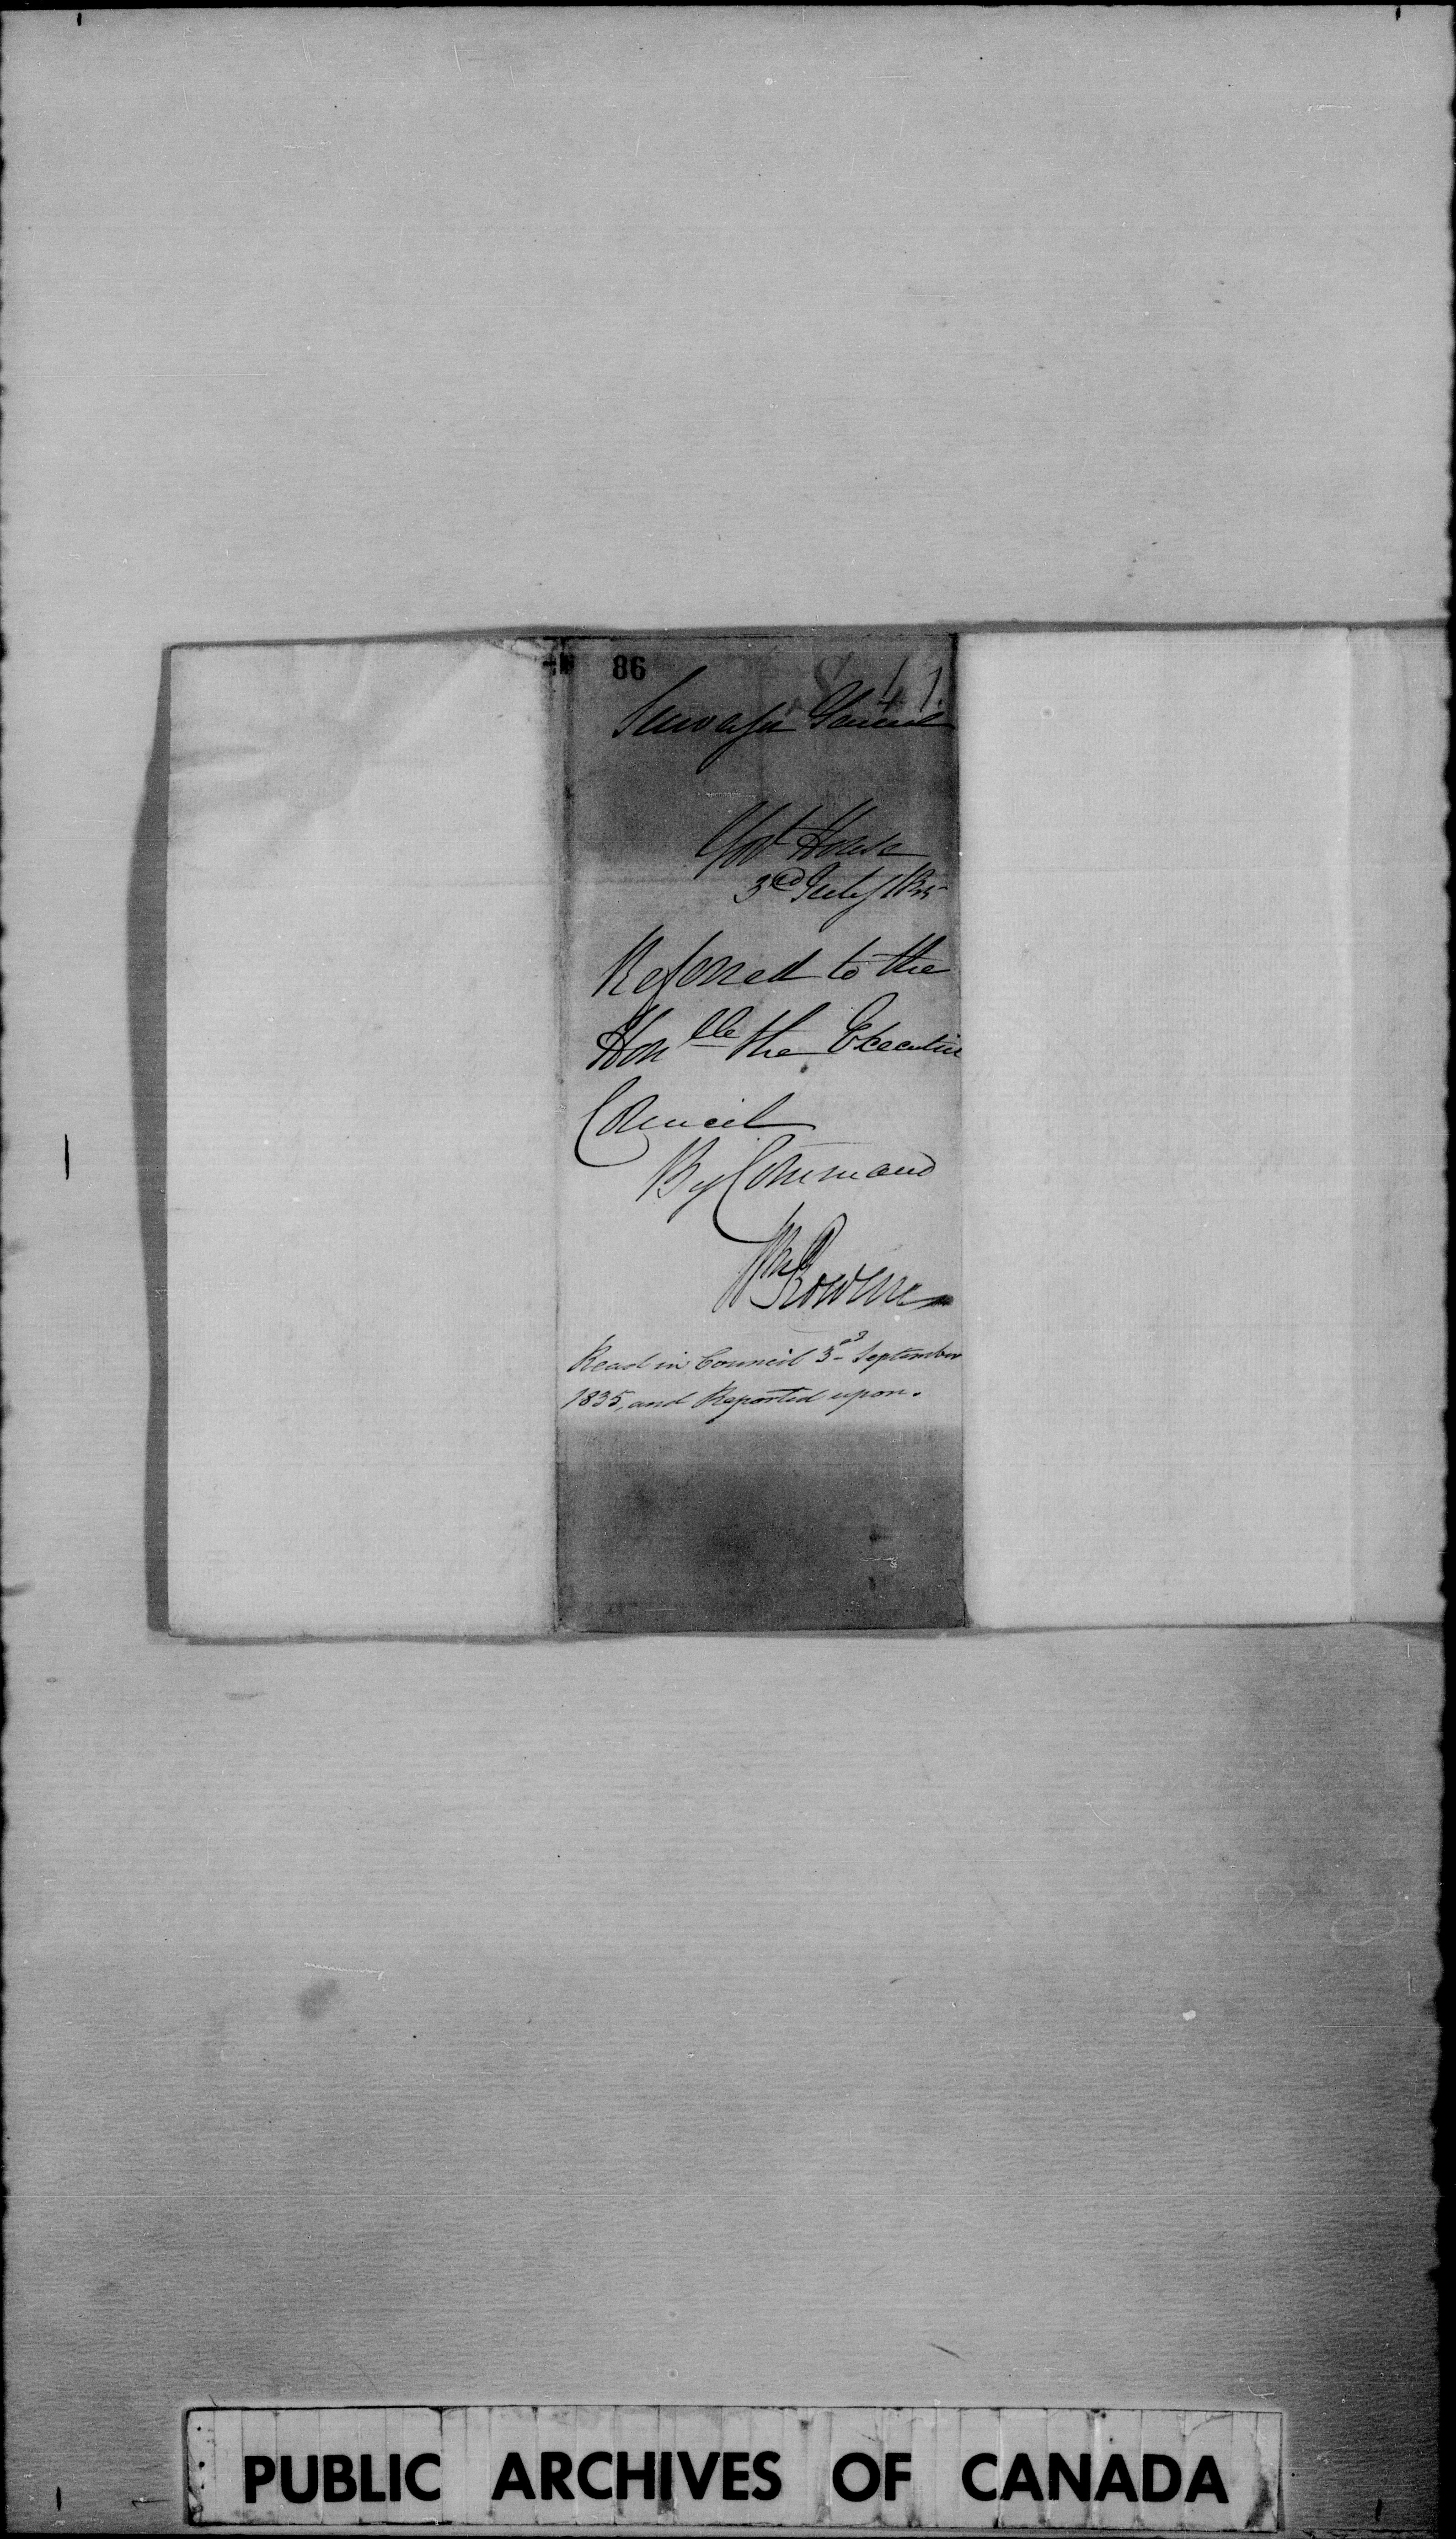 86
S 41.
Surveyor General
Govt House
3rd July 1835
Referred to the
Honble the Executive
Council
By Command
Wm Rowan
Read in Council 3rd September
1835, and Reported upon.
PUBLIC ARCHIVES OF CANADA